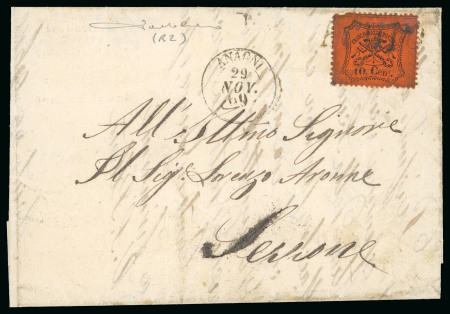 (R2)
ANAGNI
29
NOV.
69
10 Cent.
All' Illmo Signore
Il Sigr. Lorenzo
Serrone